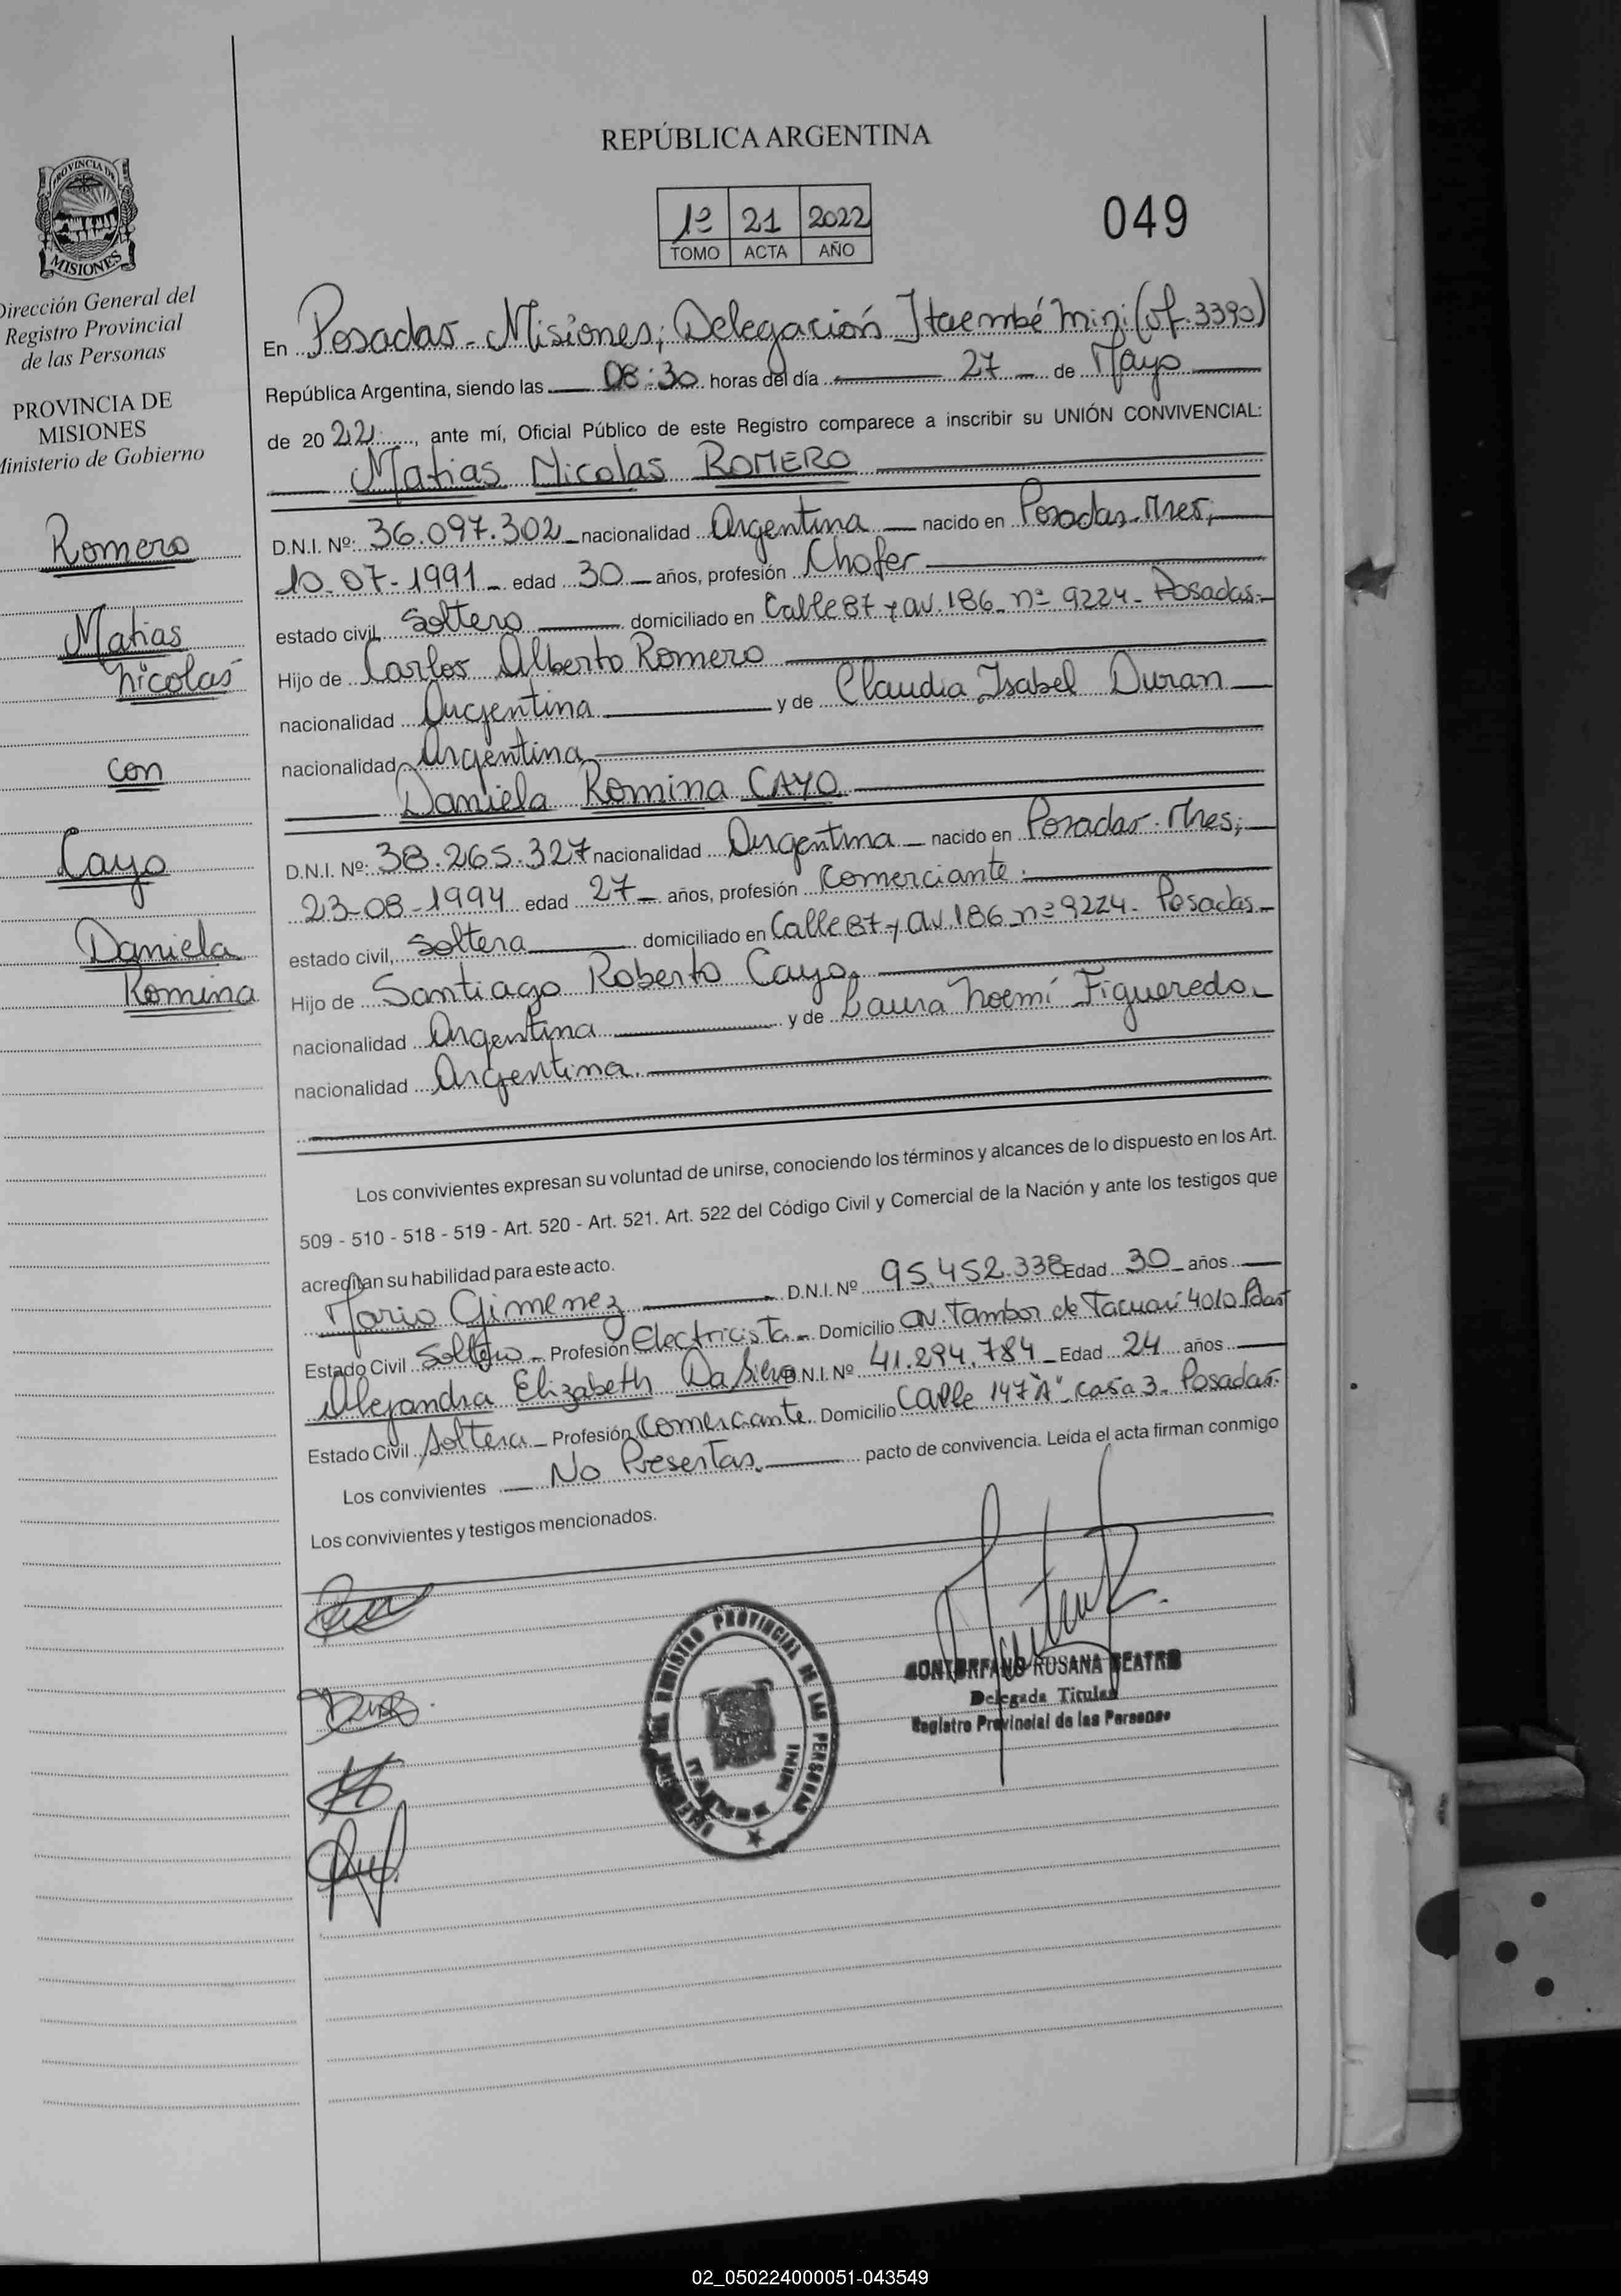 REPÚBLICA ARGENTINA
1º 21 2022
TOMO ACTA AÑO
049
PROVINCIA DE
MISIONES
Dirección General del
Registro Provincial
de las Personas
PROVINCIA DE
MISIONES
Ministerio de Gobierno
Romero
Matias
Nicolas
con
Cayo
Daniela
Romina
En Posadas - Misiones; Delegación Itaembé Mini (of. 3390)
República Argentina, siendo las 08:30 horas del día 27 de Mayo
de 2022, ante mí, Oficial Público de este Registro comparece a inscribir su UNIÓN CONVIVENCIAL:
Matias Nicolas ROMERO
D.N.I. Nº: 36.097.302 nacionalidad Argentina nacido en Posadas - Mnes;
10-07-1991 - edad 30 años, profesión Chofer
estado civil, Soltero domiciliado en Calle 87 y av. 186 - nº 9224 - Posadas.
Hijo de Carlos Alberto Romero
nacionalidad Argentina y de Claudia Isabel Duran
nacionalidad Argentina
Daniela Romina CAYO
D.N.I. Nº: 38.265.327 nacionalidad Argentina nacido en Posadas - Mnes;
23-08-1994 edad 27 años, profesión Comerciante.
estado civil, Soltera domiciliado en Calle 87 y av. 186 nº 9224 - Posadas
Hijo de Santiago Roberto Cayo.
nacionalidad Argentina y de Laura Noemí Figueredo
nacionalidad Argentina.
Los convivientes expresan su voluntad de unirse, conociendo los términos y alcances de lo dispuesto en los Art.
509 - 510 - 518 - 519 - Art. 520 - Art. 521. Art. 522 del Código Civil y Comercial de la Nación y ante los testigos que
acreditan su habilidad para este acto.
Mario Gimenez D.N.I. Nº 95.452.338 Edad 30 años
Estado Civil Soltero - Profesión Electricista - Domicilio av. Tambor de Tacuarí 4010 Pdas
Alejandra Elizabeth Da Silva D.N.I. Nº 41.294.784 Edad 24 años
Estado Civil Soltera - Profesión Comerciante. Domicilio Calle 147 "A" casa 3 - Posadas.
Los convivientes No Presentas. pacto de convivencia. Leída el acta firman conmigo
Los convivientes y testigos mencionados.
REGISTRO PROVINCIAL DE LAS PERSONAS
MINI
ROSANA BEATRIZ
Delegada Titular
Registro Provincial de las Personas
02_050224000051-043549